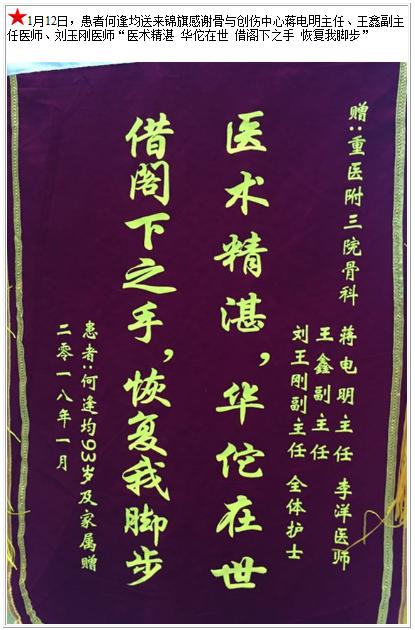 1月12日，患者何逢均送来锦旗感谢骨与创伤中心蒋电明主任、王鑫副主
任医师、刘玉刚医师“医术精湛 华佗在世 借阁下之手 恢复我脚步”
赠:重医附三院骨科
蒋电明主任 李洋医师
王鑫副主任
刘玉刚副主任 全体护士
医术精湛，华佗在世
借阁下之手，恢复我脚步
患者:何逢均93岁及家属赠
二零一八年一月